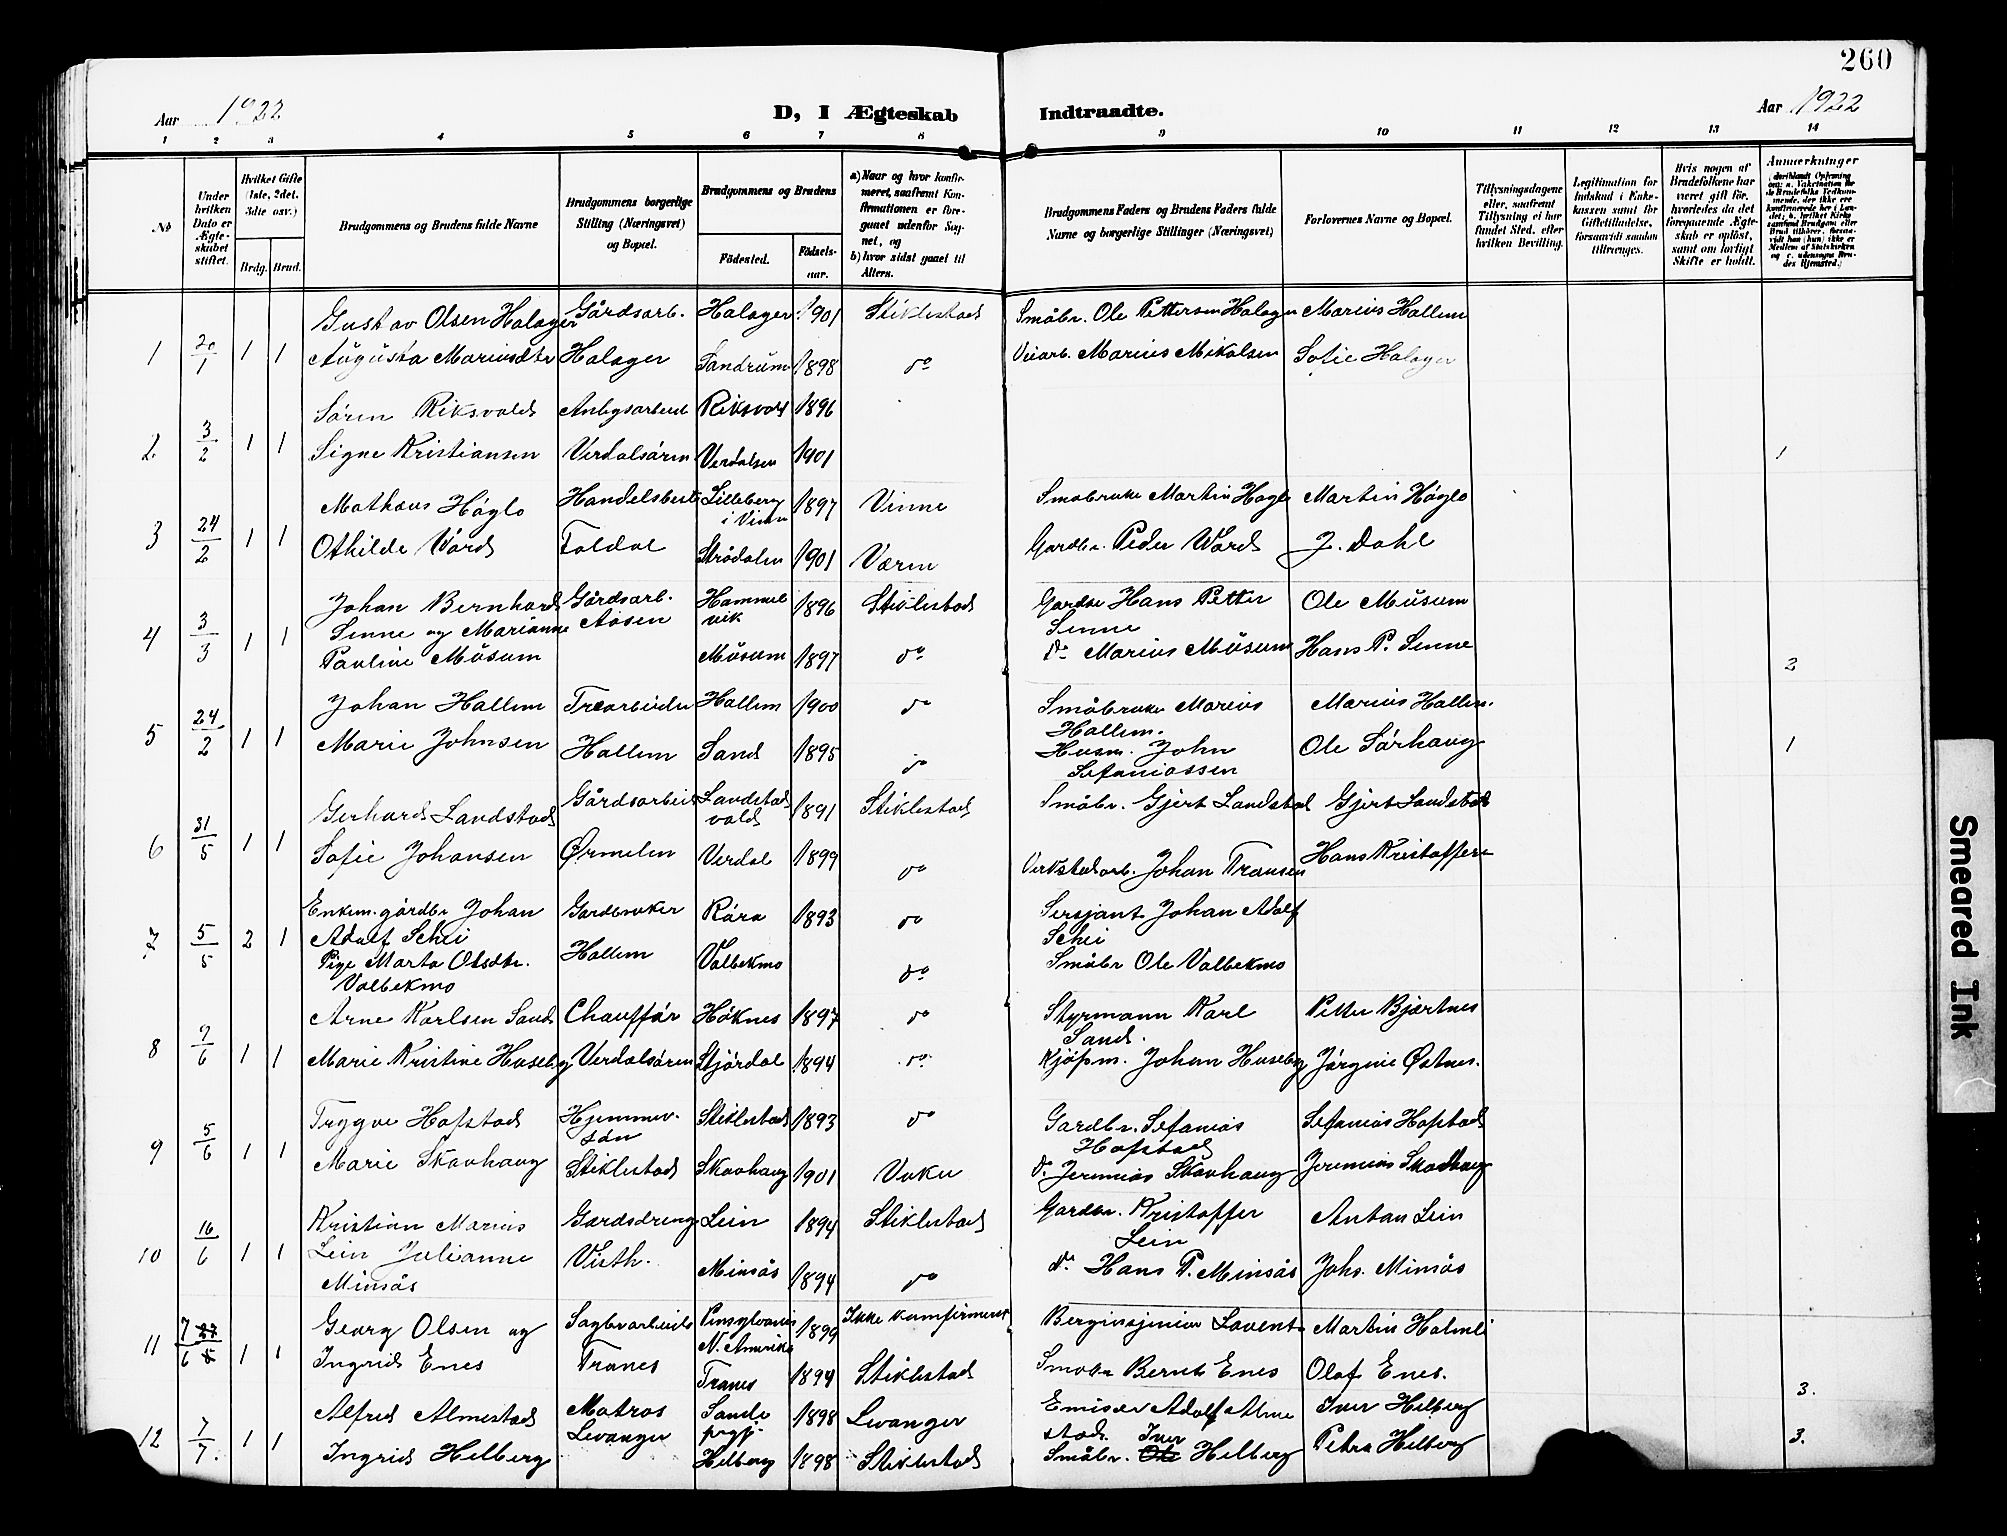 260
Aar 1922
D, I Ægteskab Indtraadte.
Aar 1922
1 2 3 4 5 6 7 8 9 10 11 12 13 14
№
Under hvilken Dato er Ægteskabet stiftet.
Hvilket Gifte (1ste, 2det, 3die osv.)
Brdg. Brud.
Brudgommens og Brudens fulde Navne
Brudgommens borgerlige Stilling (Næringsvei) og Bopæl.
Brudgommens og Brudens
Fødested.
Fødselsaar.
a) Naar og hvor konfirmeret, saafremt Konfirmationen er foregaaet udenfor Sognet, og
b) hvor sidst gaaet til Alters.
Brudgommens Faders og Brudens Faders fulde Navne og borgerlige Stillinger (Næringsvei)
Forlovernes Navne og Bopæl.
Tillysningsdagene eller, saafremt Tillysning ei har fundet Sted, efter hvilken Bevilling.
Legitimation for Indskud i Enkekassen samt for Giftetilladelse, forsaavidt saadan tiltrænges.
Hvis nogen af Brudefolkene har været gift før, hvorledes da det foregaaende Ægteskab er opløst, samt om lovligt Skifte er holdt.
Anmærkninger
1 20/1 1 1
Gustav Olsen Halager Gårdsarb. Halager 1901 Stiklestad Småbr. Ole Pettersen Halager Marius Hallem
Augusta Mariusdtr Halager Sandrum 1898 do Veiarb. Marius Mikalsen Sofie Halager
2 3/2 1 1
Sören Riksvold Anlegsarbeid Riksvold 1896
Signe Kristiansen Verdalsören Verdalsen 1901 1
3 24/2 1 1
Mathæus Höglo Handelsbest. Lilleberg i Vinne 1897 Vinne Småbruker Martin Höglo Martin Höglo
Othilde Vård Foldal Strådalen 1901 Værn Gardbr. Peder Ward J. Dahl
4 3/3 1 1
Johan Bernhard Gårdsarb. Hammelvik 1896 Stiklestad Gardbr Hans Petter Ole Müsum
Senne og Marianne Aasen Senne
Pauline Müsum Müsum 1897 do do Marius Müsum Hans P. Senne 2
5 24/2 1 1
Johan Hallem Trearbeider Hallem 1900 do Småbruker Marius Hallem. Marius Hallem.
Marie Johnsen Hallem Sand 1895 do Husm. John Sefaniassen Ole Sörhaug 1
6 31/5 1 1
Gerhard Landstad Gårdsarbeid Landstadvald 1891 Stiklestad Småbr. Gjert Landstad Gjert Landstad
Sofie Johansen Ørmelen Verdal 1899 do Verkstedarb. Johan Fransen Hans Kristoffersen
7 5/5 2 1
Enkem. gårdbr Johan Adolf Schei Gardbruker Röra 1893 do Sersjant Johan Adolf Schei
Pige Marta Olsdtr. Valbekmo Hallem Valbekmo do Småbr Ole Valbekmo
8 7/6 1 1
Arne Karlsen Sand Chaufför Höknes 1897 do Styrmann Karl Sand. Petter Bjartnes
Marie Kristine Huseby Verdalsören Stjördal 1894 do Kjöpm. Johan Huseby Jörgine Østnes.
9 5/6 1 1
Trygve Hofstad Hjemmevsön Stiklestad 1893 do Gardbr. Sefanias Hofstad Sefanias Hofstad
Marie Skavhaug Stiklestad Skavhaug 1901 Vuku do Jeremias Skavhaug Jeremias Skavhaug
10 16/6 1 1
Kristian Marius Gardsdreng Lein 1894 Stiklestad Gardbr. Kristoffer Lein Anton Lein
Lein Julianne Minsås Visth. Minsås 1894 do do Hans P. Minsås Johs. Minsås
11 7/6 22/5 1 1
Georg Olsen og Sagbrarbeide Pensylvanien N. Amerika 1899 Ikke konfirmert Berginsjeniør Lorent Martin Halmli
Ingrid Enes Tranes Tranes 1894 Stiklestad Småbr Bernt Enes Olaf Enes. 3.
12 7/7. 1 1
Alfred Almestad Matros Sande prgj. 1898 Levanger Emisær Adolf Almestad. Iver Helberg
Ingrid Helberg Levanger Helberg 1898 Stiklestad Småbr. Ole Iver Helberg Petra Helberg 3.
Smeared Ink